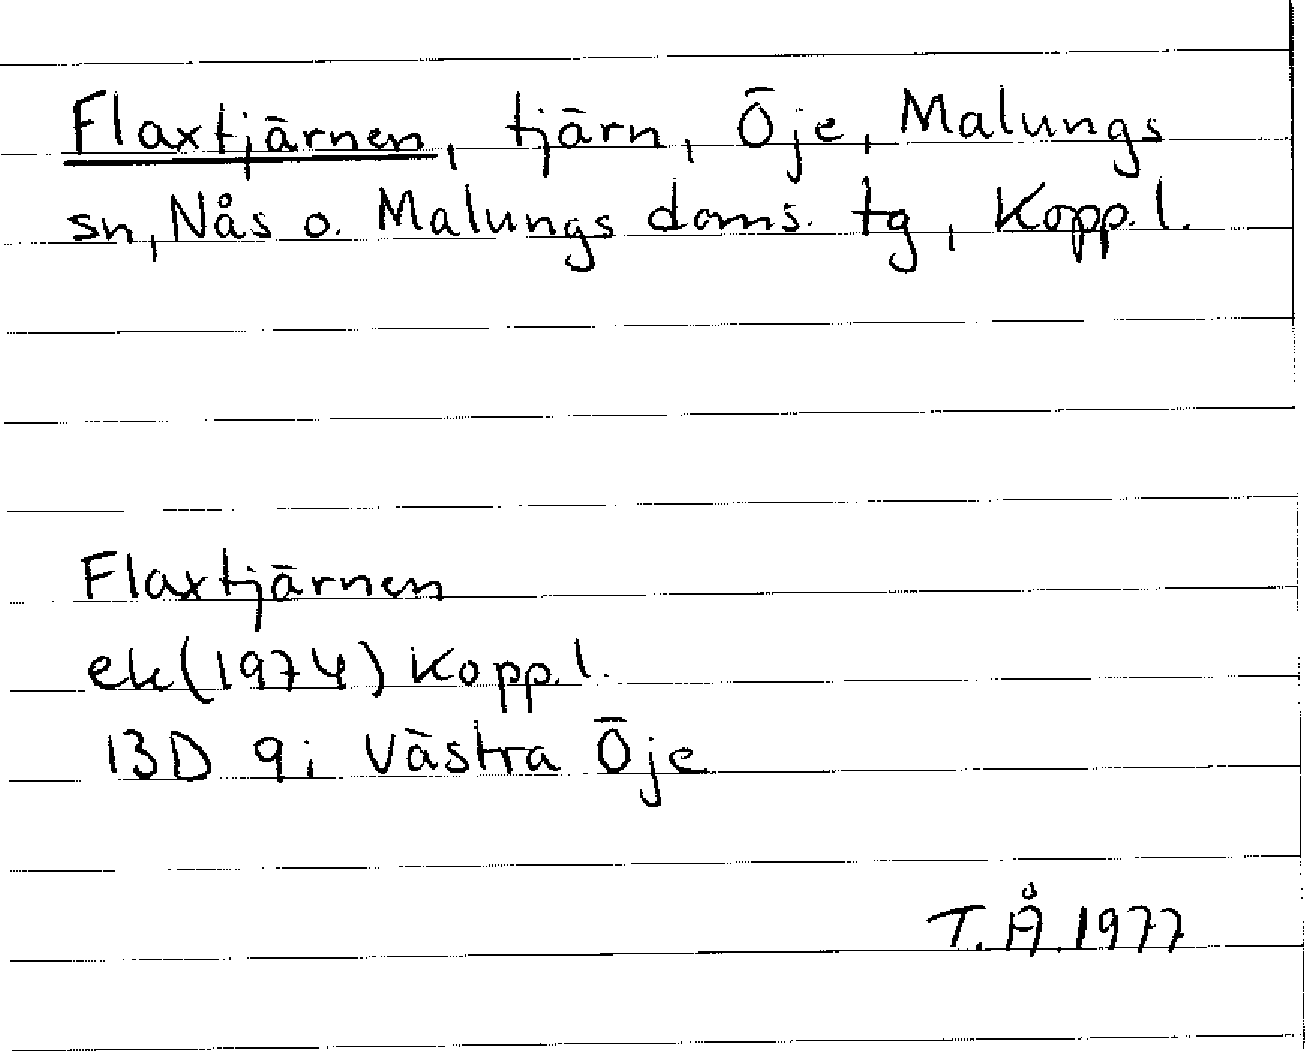 Flaxtjärnen, tjärn, Öje, Malungs
sn, Nås o. Malungs doms. tg, Kopp. l.
Flaxtjärnen
ek (1974) Kopp. l.
13D 9i Västra Öje
T.Å. 1977